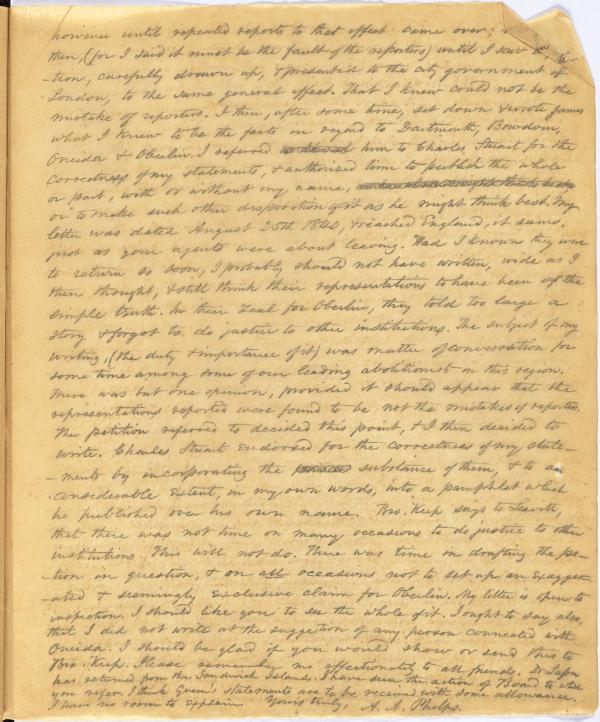 however until repeated reports to that effect came over;
then, (for I said it must be the fault of the reporters) until I saw
-tion, carefully drawn up, & presented to the city government of
London, to the same general effect. That I knew could not be the
mistake of reporters. I then, after some time, set down & wrote James
what I knew to be the facts in regard to Dartmouth, Bowdoin,
Oneida & Oberlin. I referred him to Charles Stuart for the
correctness of my statements, & authorized him to publish the whole
or part, with or without my name,
or to make such other disposition of it as he might think best. My
letter was dated August 25th 1840, & reached England, it seems,
just as your agents were about leaving. Had I known they were
to return so soon, I probably should not have written, wide as I
then thought, & still think their representations to have been of the
simple truth. In their zeal for Oberlin, they told too large a
story & forgot to do justice to other institutions. The subject of my
writing, (the duty & importance of it) was matter of conversation for
some time among some of our leading abolitionists in this region.
There was but one opinion, provided it should appear that the
representations reported were found to be not the mistakes of reporters.
The petition referred to decided this point, & I then decided to
write. Charles Stuart endorsed for the correctness of my state-
-ments by incorporating the substance of them, & to a
considerable extent, in my own words, into a pamphlet which
he published over his own name. Bro. Keep says to Leavitt,
that there was not time on many occasions to do justice to other
institutions. This will not do. There was time on drafting the pe-
-tion in question, & on all occasions not to set up an exagger-
-ated & seemingly exclusive claim for Oberlin. My letter is open to
inspection. I should like you to see the whole of it. I ought to say also,
that I did not write at the suggestion of any person connected with
Oneida. I should be glad if you would show or send this to
Bro. Keep. Please remember me affectionately to all friends. Dr Lafon
has returned from the Sandwich Islands. I have seen the action of Board to which
you refer. I think Green's statements are to be received with some allowance.
I have no room to explain. Yours truly, A. A. Phelps.